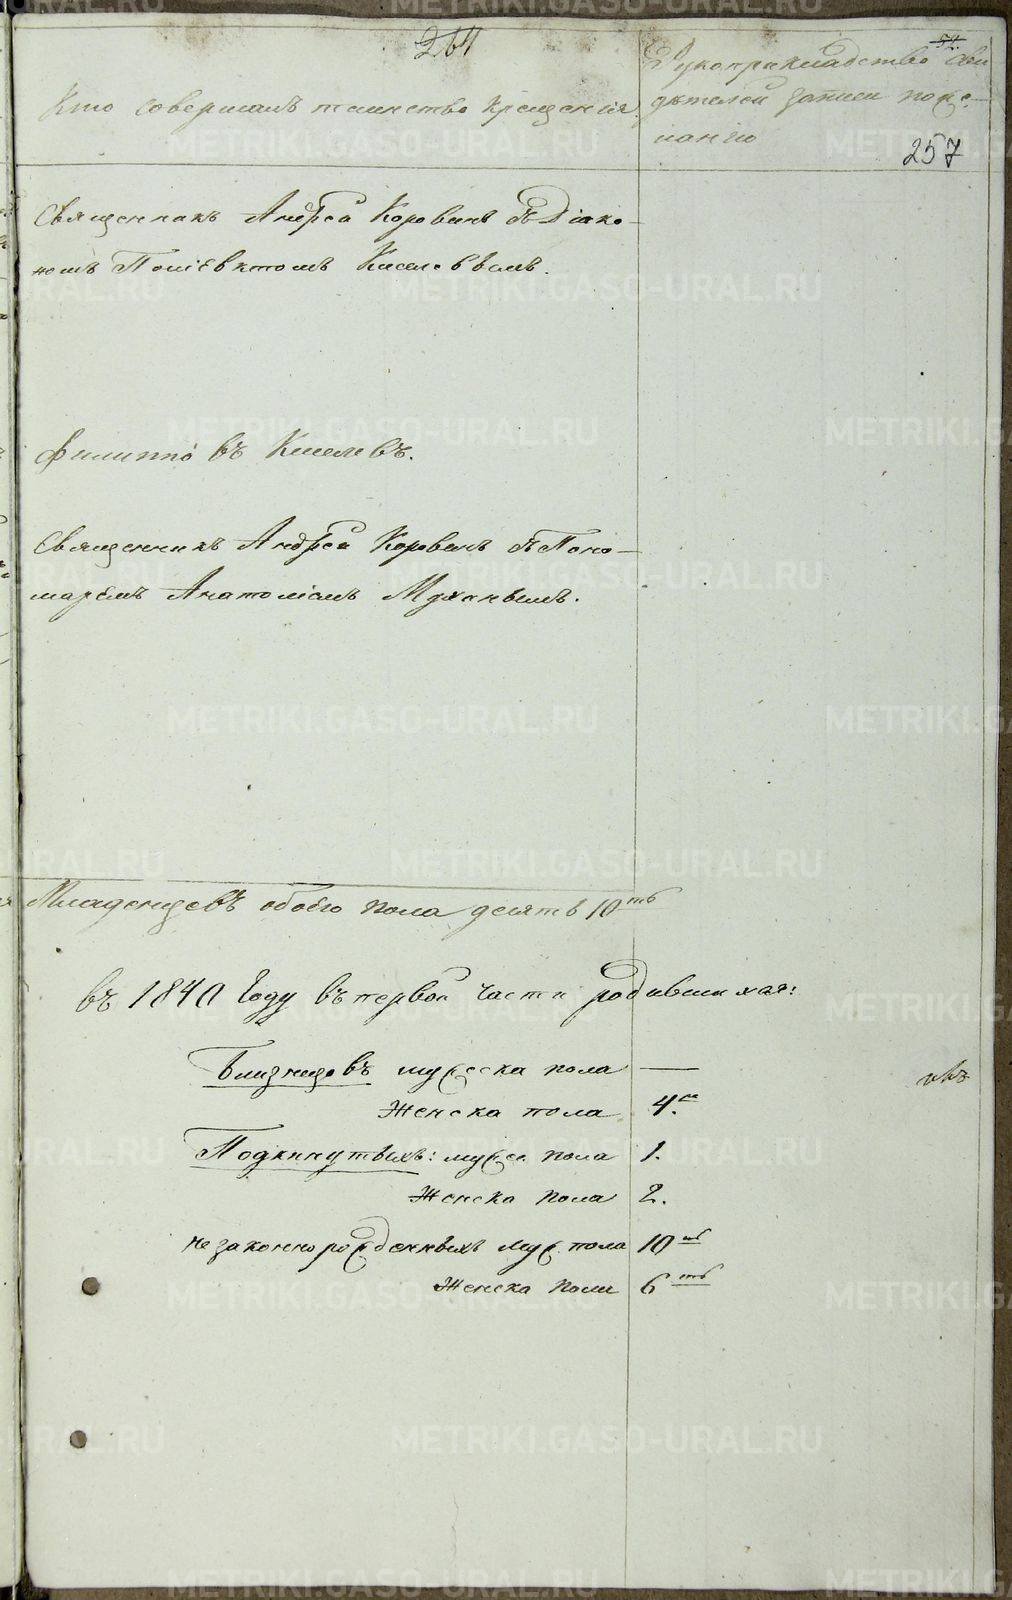 264
Кто совершалъ таинство крещенія.
Рукоприкладство сви
дѣтелей записи по же-
ланію
52.
257
Священникъ Андрей Коровинъ съ Діако-
номъ Поліевктомъ Киселевымъ.
Филиппо въ Киселевъ.
Священникъ Андрей Коровинъ съ Поно-
маремъ Анатоліемъ
Младенцевъ обоего пола десять 10ть
въ 1840 Году въ первой части родившихся:
Близнецовъ мужеска пола —
Женска пола 4.ре
Подкинутыхъ: мужес. пола 1.
Женска пола 2.
незаконнорожденныхъ муж. пола 10ть
Женска пола 6ть
METRIKI.GASO-URAL.RU